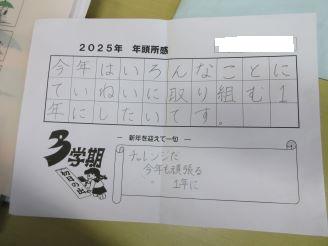 2025年 年頭所感
今年はいろんなことに
ていねいに取り組む1
年にしたいです。
3学期
初日の出
― 新年を迎えて一句 ―
チャレンジだ
今年も頑張る
1年に